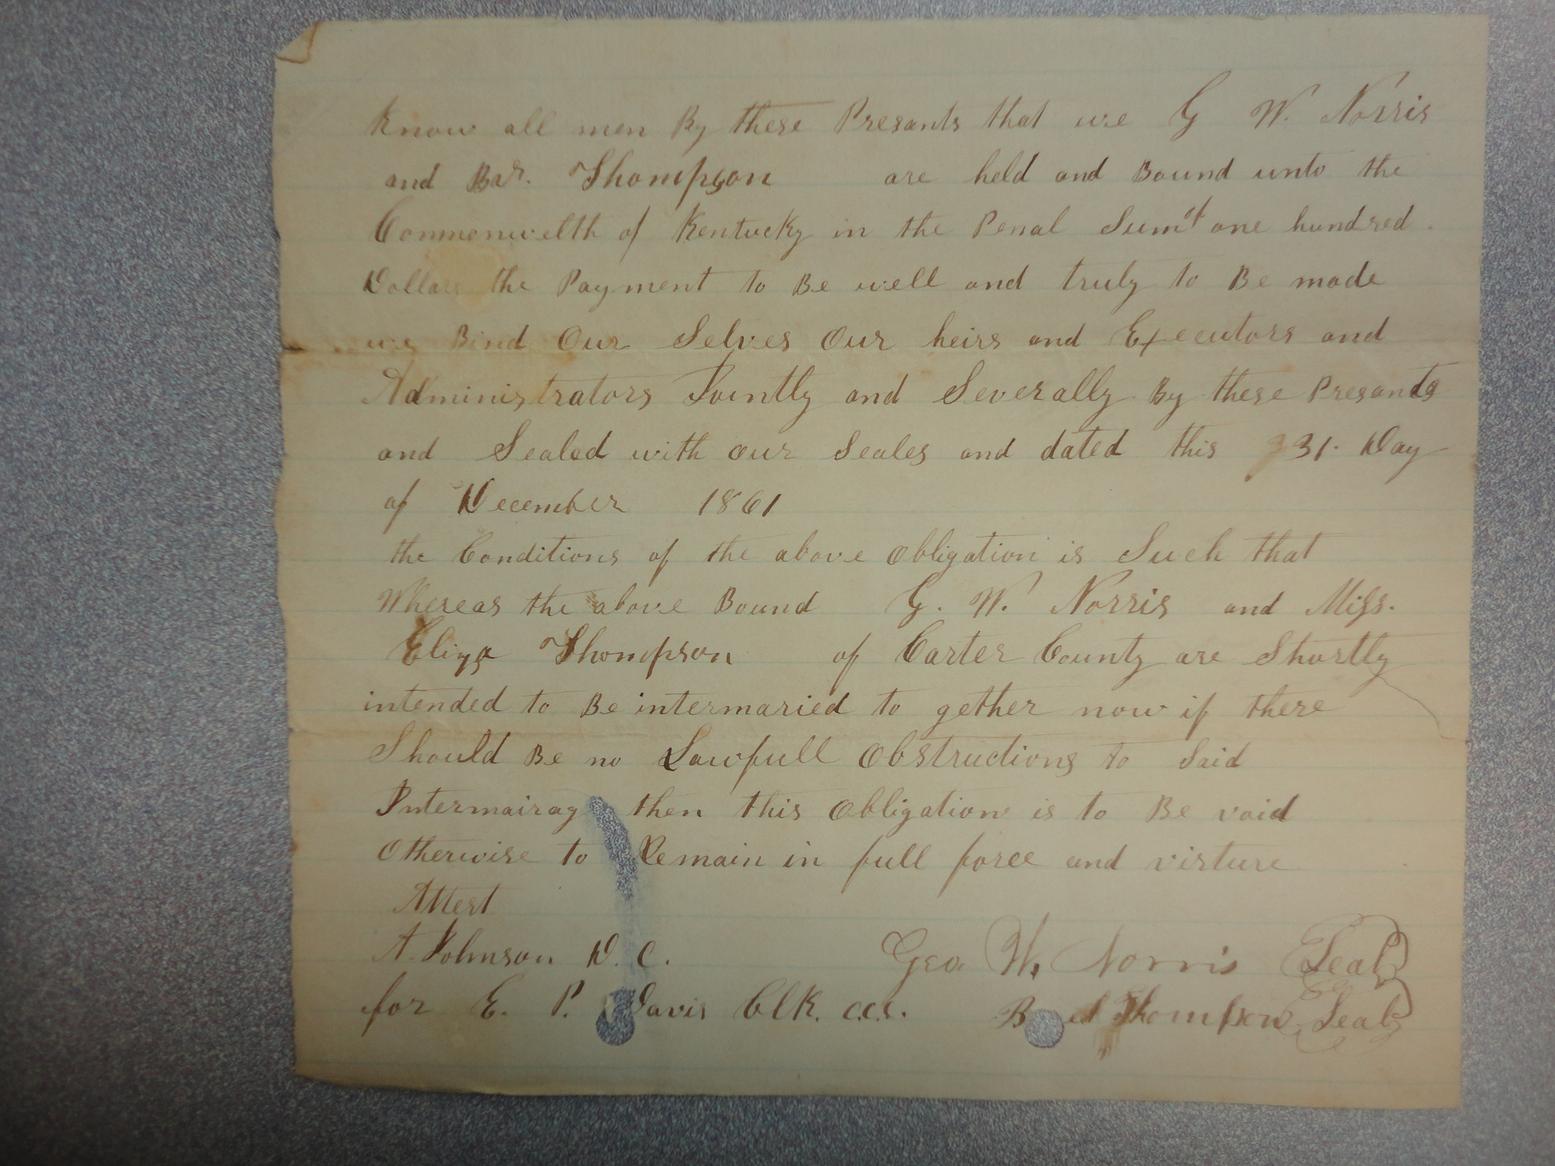 Know all men By these Presants that we G W. Norris
and Bar. Thompson are held and Bound unto the
Commonwelth of Kentucky in the Penal Sum of one hundred
Dollars the Payment to Be well and truly to Be made
we Bind Our Selves Our heirs and Executors and
Administrators Jointly and Severally By these Presants
and Sealed with our Seales and dated this 31. Day
of December 1861
the Conditions of the above Obligation is Such that
Whereas the above Bound G. W. Norris and Miss.
Eliza Thompson of Carter County are Shortly
intended to Be intermaried to gether now if there
Should Be no Lawfull Obstructions to Said
Intermairag then this Obligation is to Be void
Otherwise to Remain in full force and virture
Attest
A. Johnson D. C. Geo W. Norris Seal
for E. P. Davis Clk. c.c.c. Thompson Seal